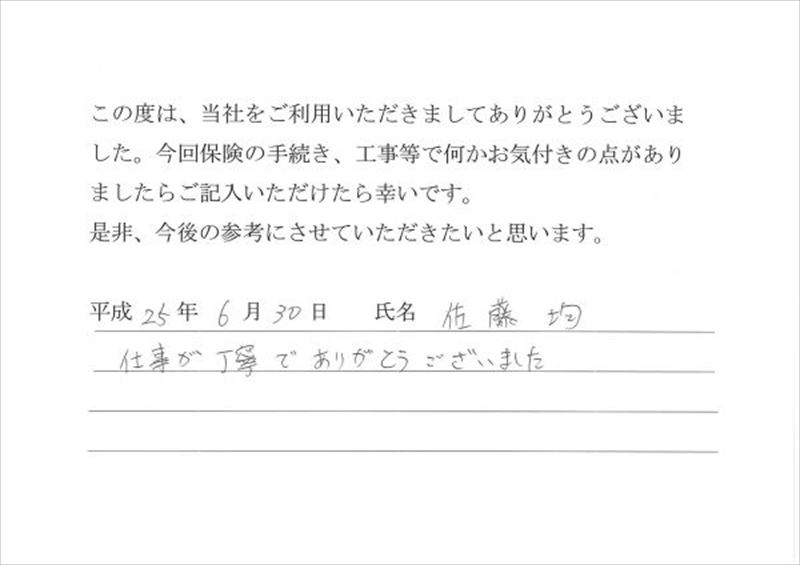 この度は、当社をご利用いただきましてありがとうございま
した。今回保険の手続き、工事等で何かお気付きの点があり
ましたらご記入いただけたら幸いです。
是非、今後の参考にさせていただきたいと思います。
平成 25 年 6 月 30 日 氏名 佐藤 均
仕事が丁寧でありがとうございました